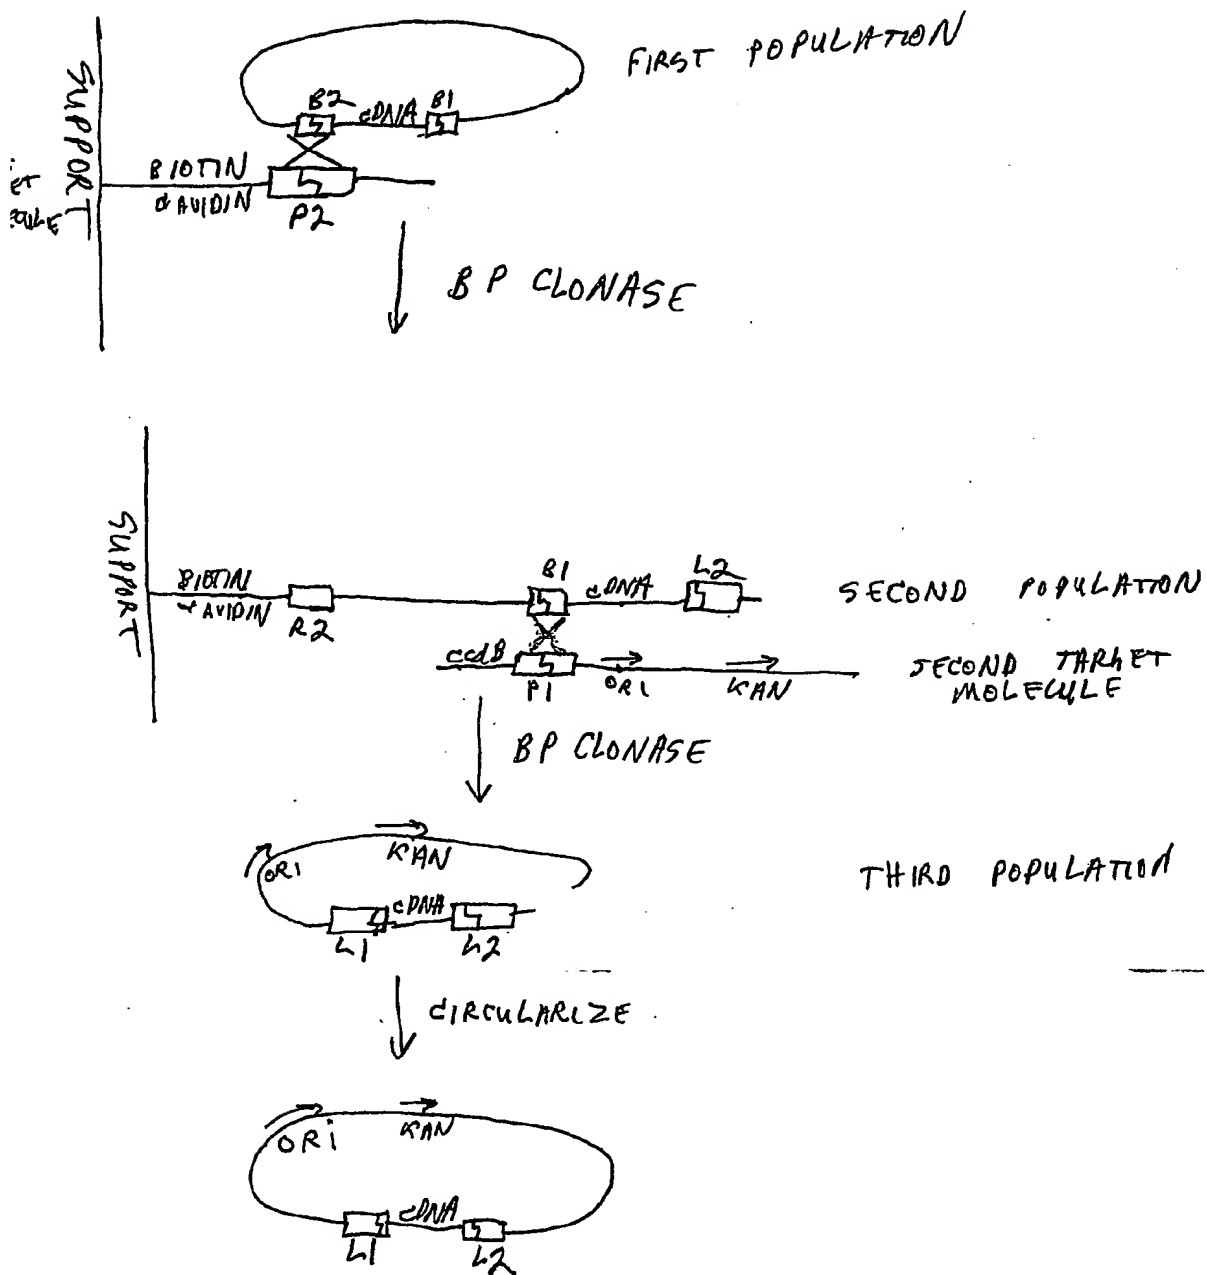 FIRST POPULATION
SUPPORT
B2 cDNA B1
BIOTIN
AVIDIN
P2
BP CLONASE
SUPPORT
BIOTIN
AVIDIN
R2
B1 cDNA L2
SECOND POPULATION
ccdB P1 ORI KAN
SECOND TARGET
MOLECULE
BP CLONASE
ORI KAN
THIRD POPULATION
cDNA
L1 L2
CIRCULARIZE
ORI KAN
cDNA
L1 L2